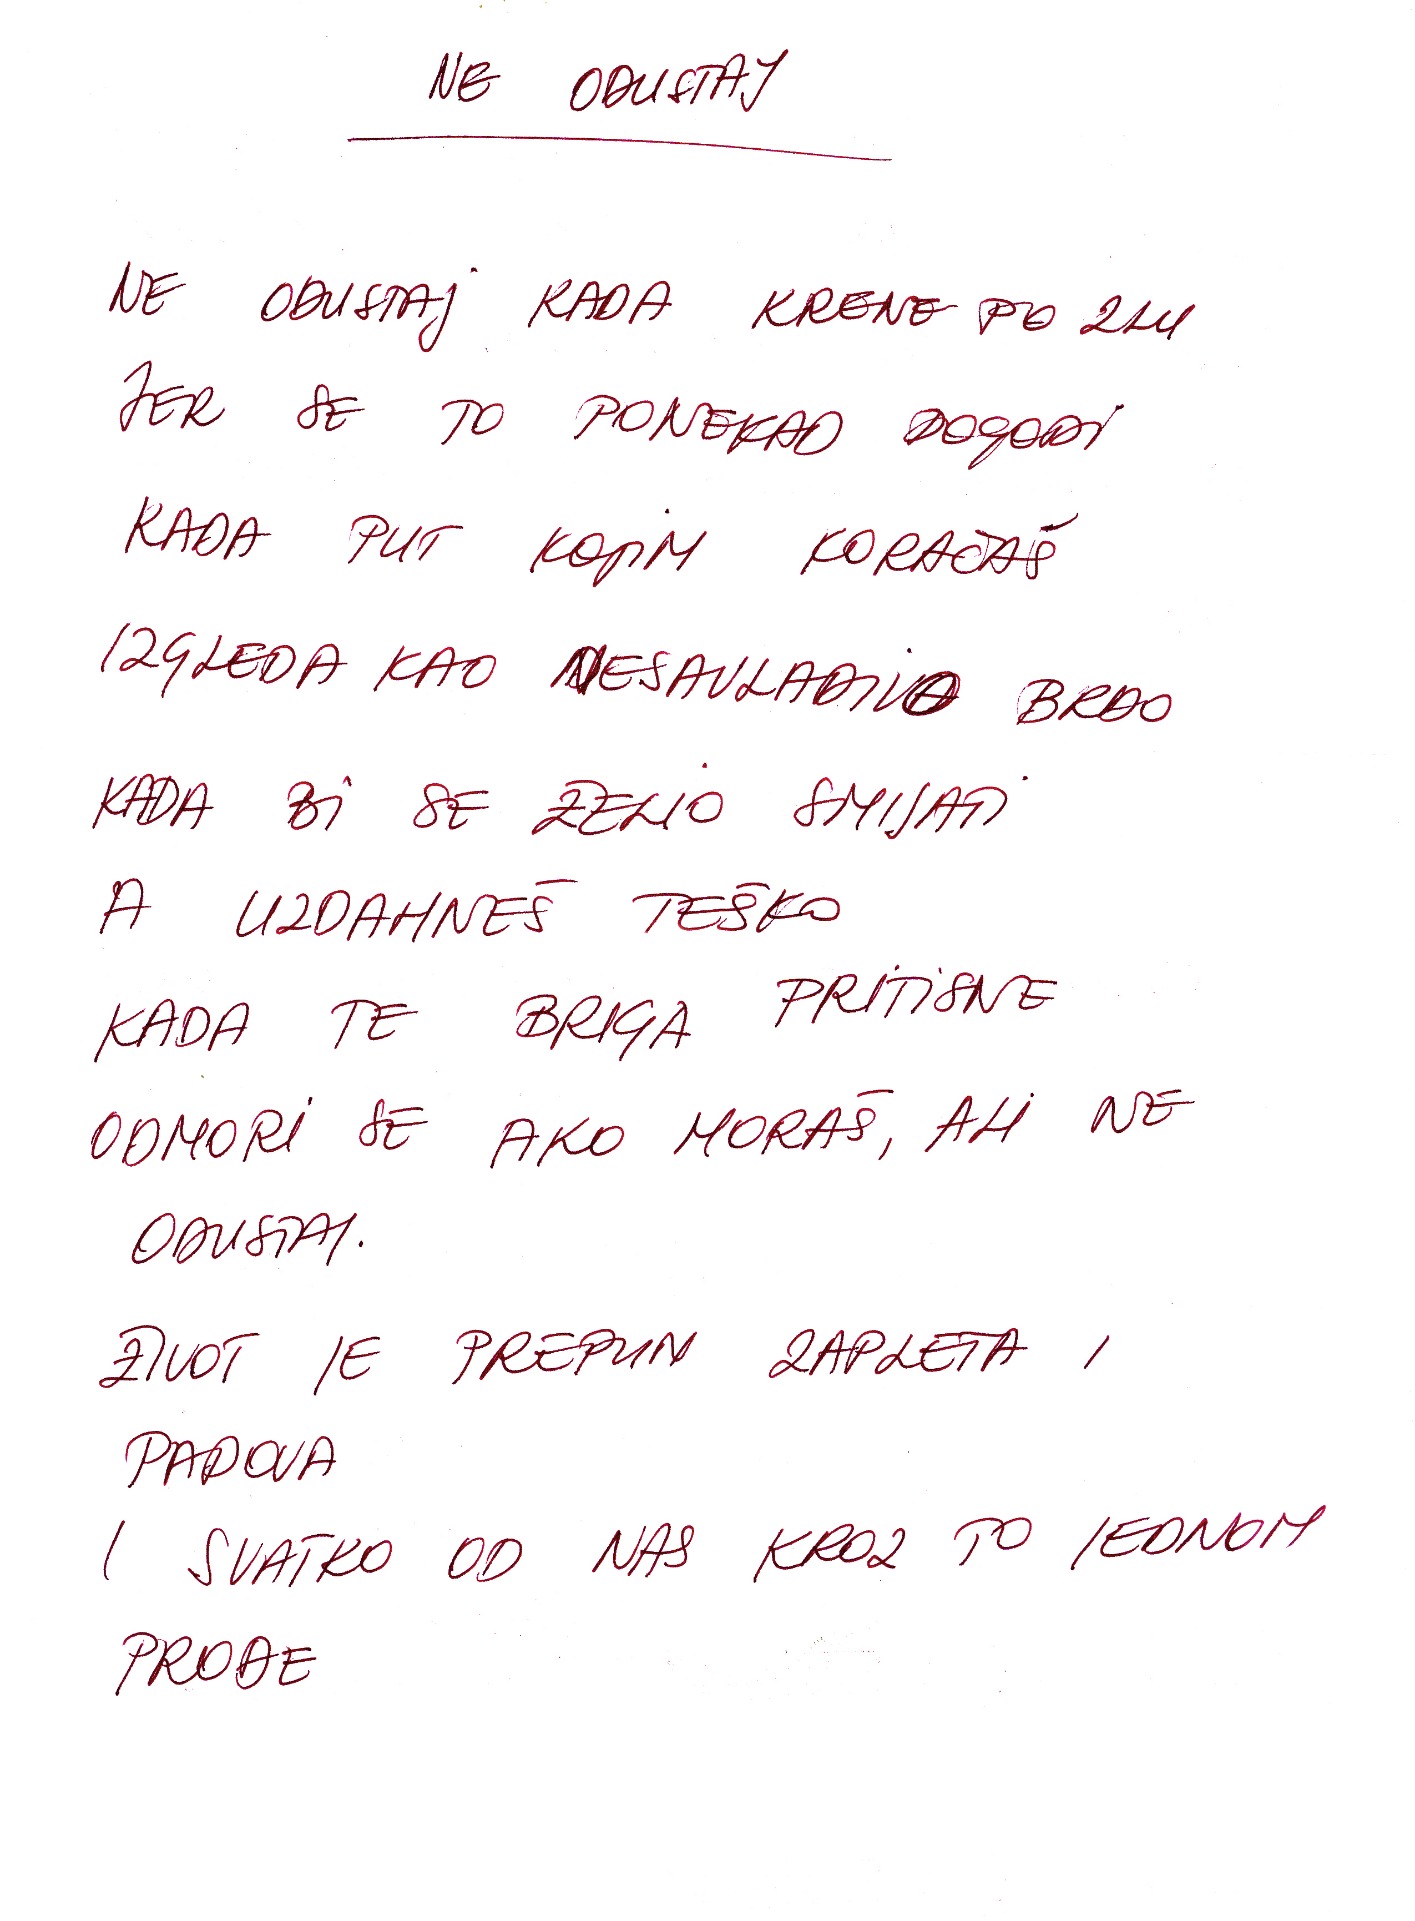 NE ODUSTAJ
NE ODUSTAJ KADA KRENE PO ZLU
JER SE TO PONEKAD DOGODI
KADA PUT KOJIM KORAČAŠ
IZGLEDA KAO NESAVLADIVO BRDO
KADA BI SE ŽELIO SMIJATI
A UZDAHNEŠ TEŠKO
KADA TE BRIGA PRITISNE
ODMORI SE AKO MORAŠ, ALI NE
ODUSTAJ.
ŽIVOT JE PREPUN ZAPLETA I
PADOVA
I SVATKO OD NAS KROZ TO JEDNOM
PROĐE